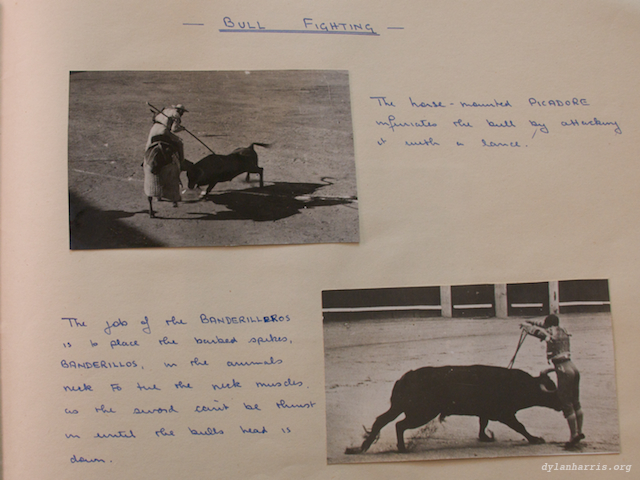 — BULL FIGHTING —
The horse-mounted PICADORE
infuriates the bull by attacking
it with a lance.
The job of the BANDERILLEROS
is to place the barbed spikes,
BANDERILLOS, in the animals
neck to tire the neck muscles.
as the sword can't be thrust
in until the bulls head is
down.
dylanharris.org